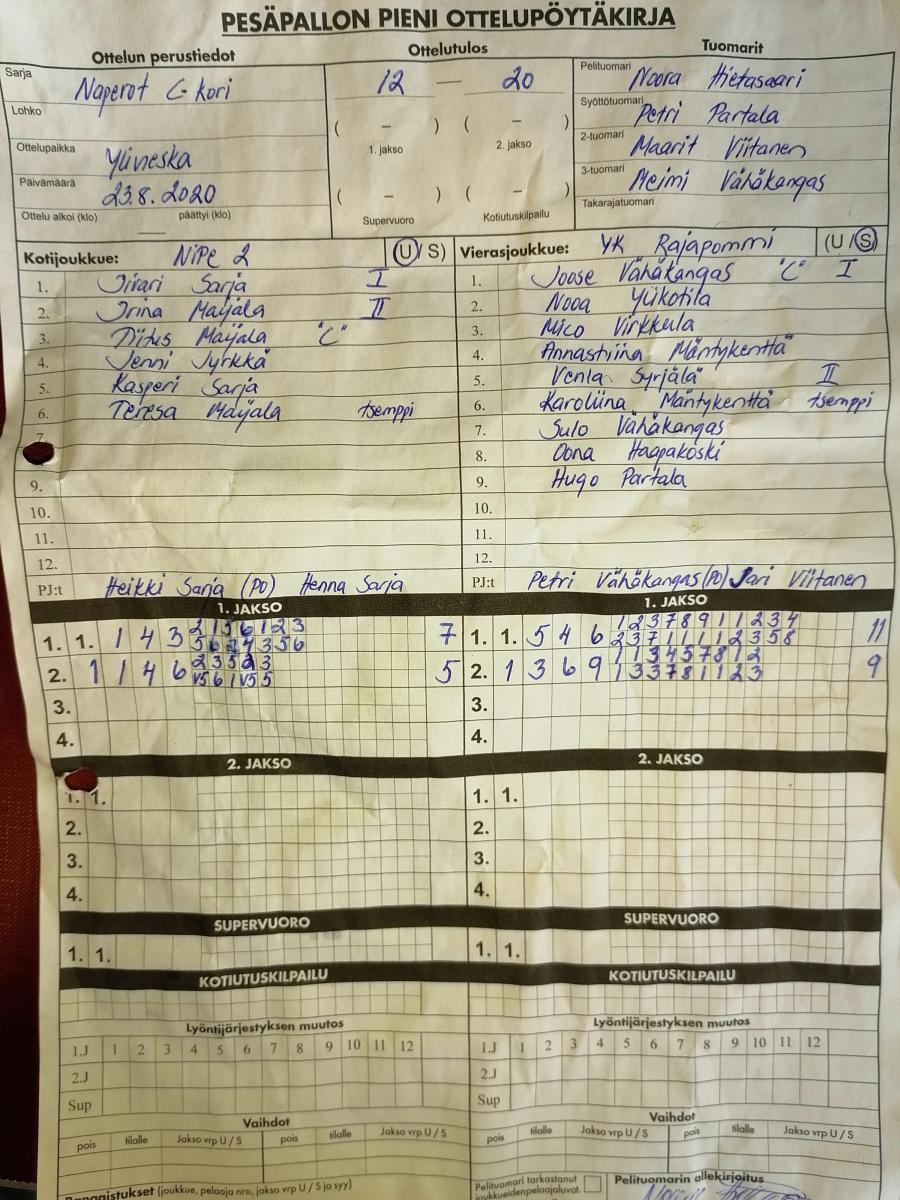 PESÄPALLON PIENI OTTELUPÖYTÄKIRJA
Ottelun perustiedot
Ottelutulos
Tuomarit
Sarja Naperot C-kori
12 — 20
Pelituomari Noora Hietasaari
Lohko
Syöttötuomari Petri Partala
( – ) ( – )
1. jakso 2. jakso
Ottelupaikka Ylivieska
2-tuomari Maarit Viitanen
Päivämäärä 23.8.2020
3-tuomari Meimi Vähäkangas
( – ) ( – )
Ottelu alkoi (klo) — päättyi (klo)
Supervuoro Kotiutuskilpailu
Takarajatuomari
Kotijoukkue: NiPe 2 (U / S)
1. Iivari Sarja I
2. Irina Maijala II
3. Tiitus Maijala "C"
4. Jenni Jyrkkä
5. Kasperi Sarja
6. Teresa Maijala tsemppi
7.
9.
10.
11.
12.
PJ:t Heikki Sarja (PO) Henna Sarja
Vierasjoukkue: YK Rajapommi (U / S)
1. Joose Vähäkangas "C" I
2. Nooa Ylikotila
3. Mico Virkkula
4. Annastiina Mäntykenttä
5. Venla Syrjälä II
6. Karoliina Mäntykenttä tsemppi
7. Sulo Vähäkangas
8. Oona Haapakoski
9. Hugo Partala
10.
11.
12.
PJ:t Petri Vähäkangas (PO) Jari Viitanen
1. JAKSO
1. 1. 1 4 3 7
2. 1 1 4 6 5
3.
4.
1. JAKSO
1. 1. 5 4 6 1 2 3 7 8 9 1 1 2 3 4 11
2 3 7 1 1 1 1 2 3 5 8
2. 1 3 6 9 1 1 3 4 5 7 8 1 2 9
1 3 3 7 8 1 1 2 3
3.
4.
2. JAKSO
1. 1.
2.
3.
4.
2. JAKSO
1. 1.
2.
3.
4.
SUPERVUORO
1. 1.
SUPERVUORO
1. 1.
KOTIUTUSKILPAILU
KOTIUTUSKILPAILU
Lyöntijärjestyksen muutos
1.J 1 2 3 4 5 6 7 8 9 10 11 12
2.J
Sup
Lyöntijärjestyksen muutos
1.J 1 2 3 4 5 6 7 8 9 10 11 12
2.J
Sup
Vaihdot
pois tilalle Jakso vrp U / S pois tilalle Jakso vrp U / S
Vaihdot
pois tilalle Jakso vrp U / S pois tilalle Jakso vrp U / S
(joukkue, pelaaja nro, jakso vrp U / S ja syy)
Pelituomari tarkastanut
joukkueidenpelaajaluvat.
Pelituomarin allekirjoitus